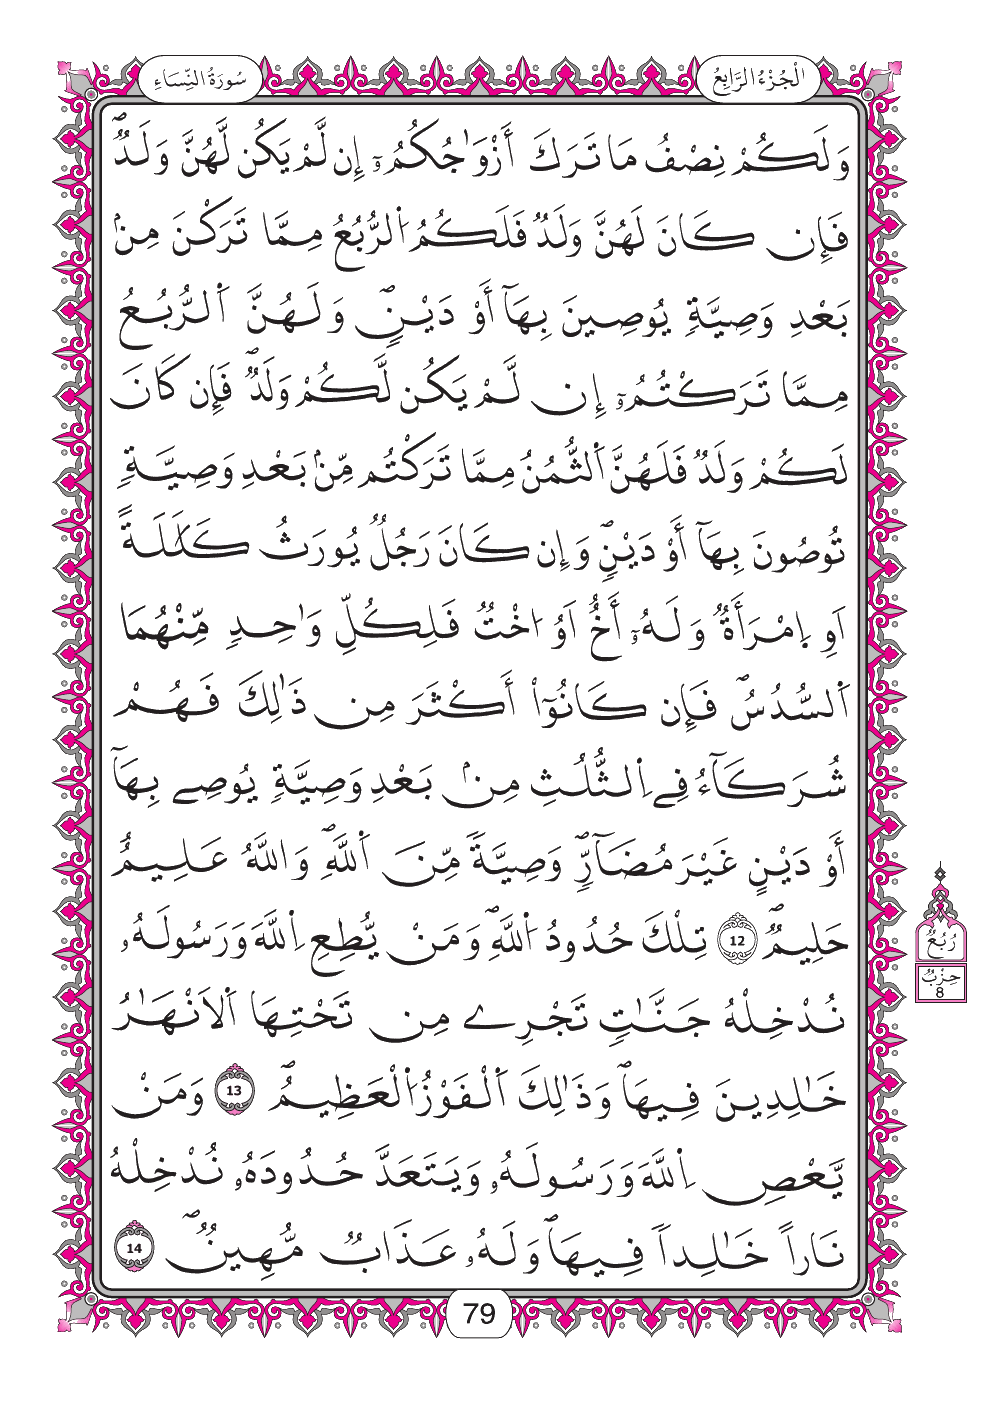 الْجُزْءُ الرَّابِعُ
سُورَةُ النِّسَاءِ
وَلَكُمْ نِصْفُ مَا تَرَكَ أَزْوَٰجُكُمُۥٓ إِن لَّمْ يَكُن لَّهُنَّ وَلَدٌۖ
فَإِن كَانَ لَهُنَّ وَلَدٌ فَلَكُمُ اُ۬لرُّبُعُ مِمَّا تَرَكْنَ مِنۢ
بَعْدِ وَصِيَّةٖ يُوصِينَ بِهَآ أَوْ دَيْنٖۖ وَلَهُنَّ اَ۬لرُّبُعُ
مِمَّا تَرَكْتُمُۥٓ إِن لَّمْ يَكُن لَّكُمْ وَلَدٌۖ فَإِن كَانَ
لَكُمْ وَلَدٌ فَلَهُنَّ اَ۬لثُّمُنُ مِمَّا تَرَكْتُم مِّنۢ بَعْدِ وَصِيَّةٖ
تُوصُونَ بِهَآ أَوْ دَيْنٖۖ وَإِن كَانَ رَجُلٌ يُورَثُ كَلَٰلَةً
اَوِ اِ۪مْرَأَةٌ وَلَهُۥٓ أَخٌ اَوُ ا۟خْتٌ فَلِكُلِّ وَٰحِدٖ مِّنْهُمَا
اَ۬لسُّدُسُۖ فَإِن كَانُوٓاْ أَكْثَرَ مِن ذَٰلِكَ فَهُمْ
شُرَكَآءُ فِے اِ۬لثُّلُثِ مِنۢ بَعْدِ وَصِيَّةٖ يُوصِے بِهَآ
أَوْ دَيْنٍ غَيْرَ مُضَآرّٖۖ وَصِيَّةٗ مِّنَ اَ۬للَّهِۖ وَاللَّهُ عَلِيمٌ
حَلِيمٌۖ 12 تِلْكَ حُدُودُ اُ۬للَّهِۖ وَمَنْ يُّطِعِ اِ۬للَّهَ وَرَسُولَهُۥ
نُدْخِلْهُ جَنَّٰتٖ تَجْرِے مِن تَحْتِهَا اَ۬لَانْهَٰرُ
خَٰلِدِينَ فِيهَاۖ وَذَٰلِكَ اَ۬لْفَوْزُ اُ۬لْعَظِيمُۖ 13 وَمَنْ
يَّعْصِ اِ۬للَّهَ وَرَسُولَهُۥ وَيَتَعَدَّ حُدُودَهُۥ نُدْخِلْهُ
نَاراً خَٰلِداٗ فِيهَاۖ وَلَهُۥ عَذَابٌ مُّهِينٌۖ 14
رُبُعٌ
حِزْبٌ
8
79